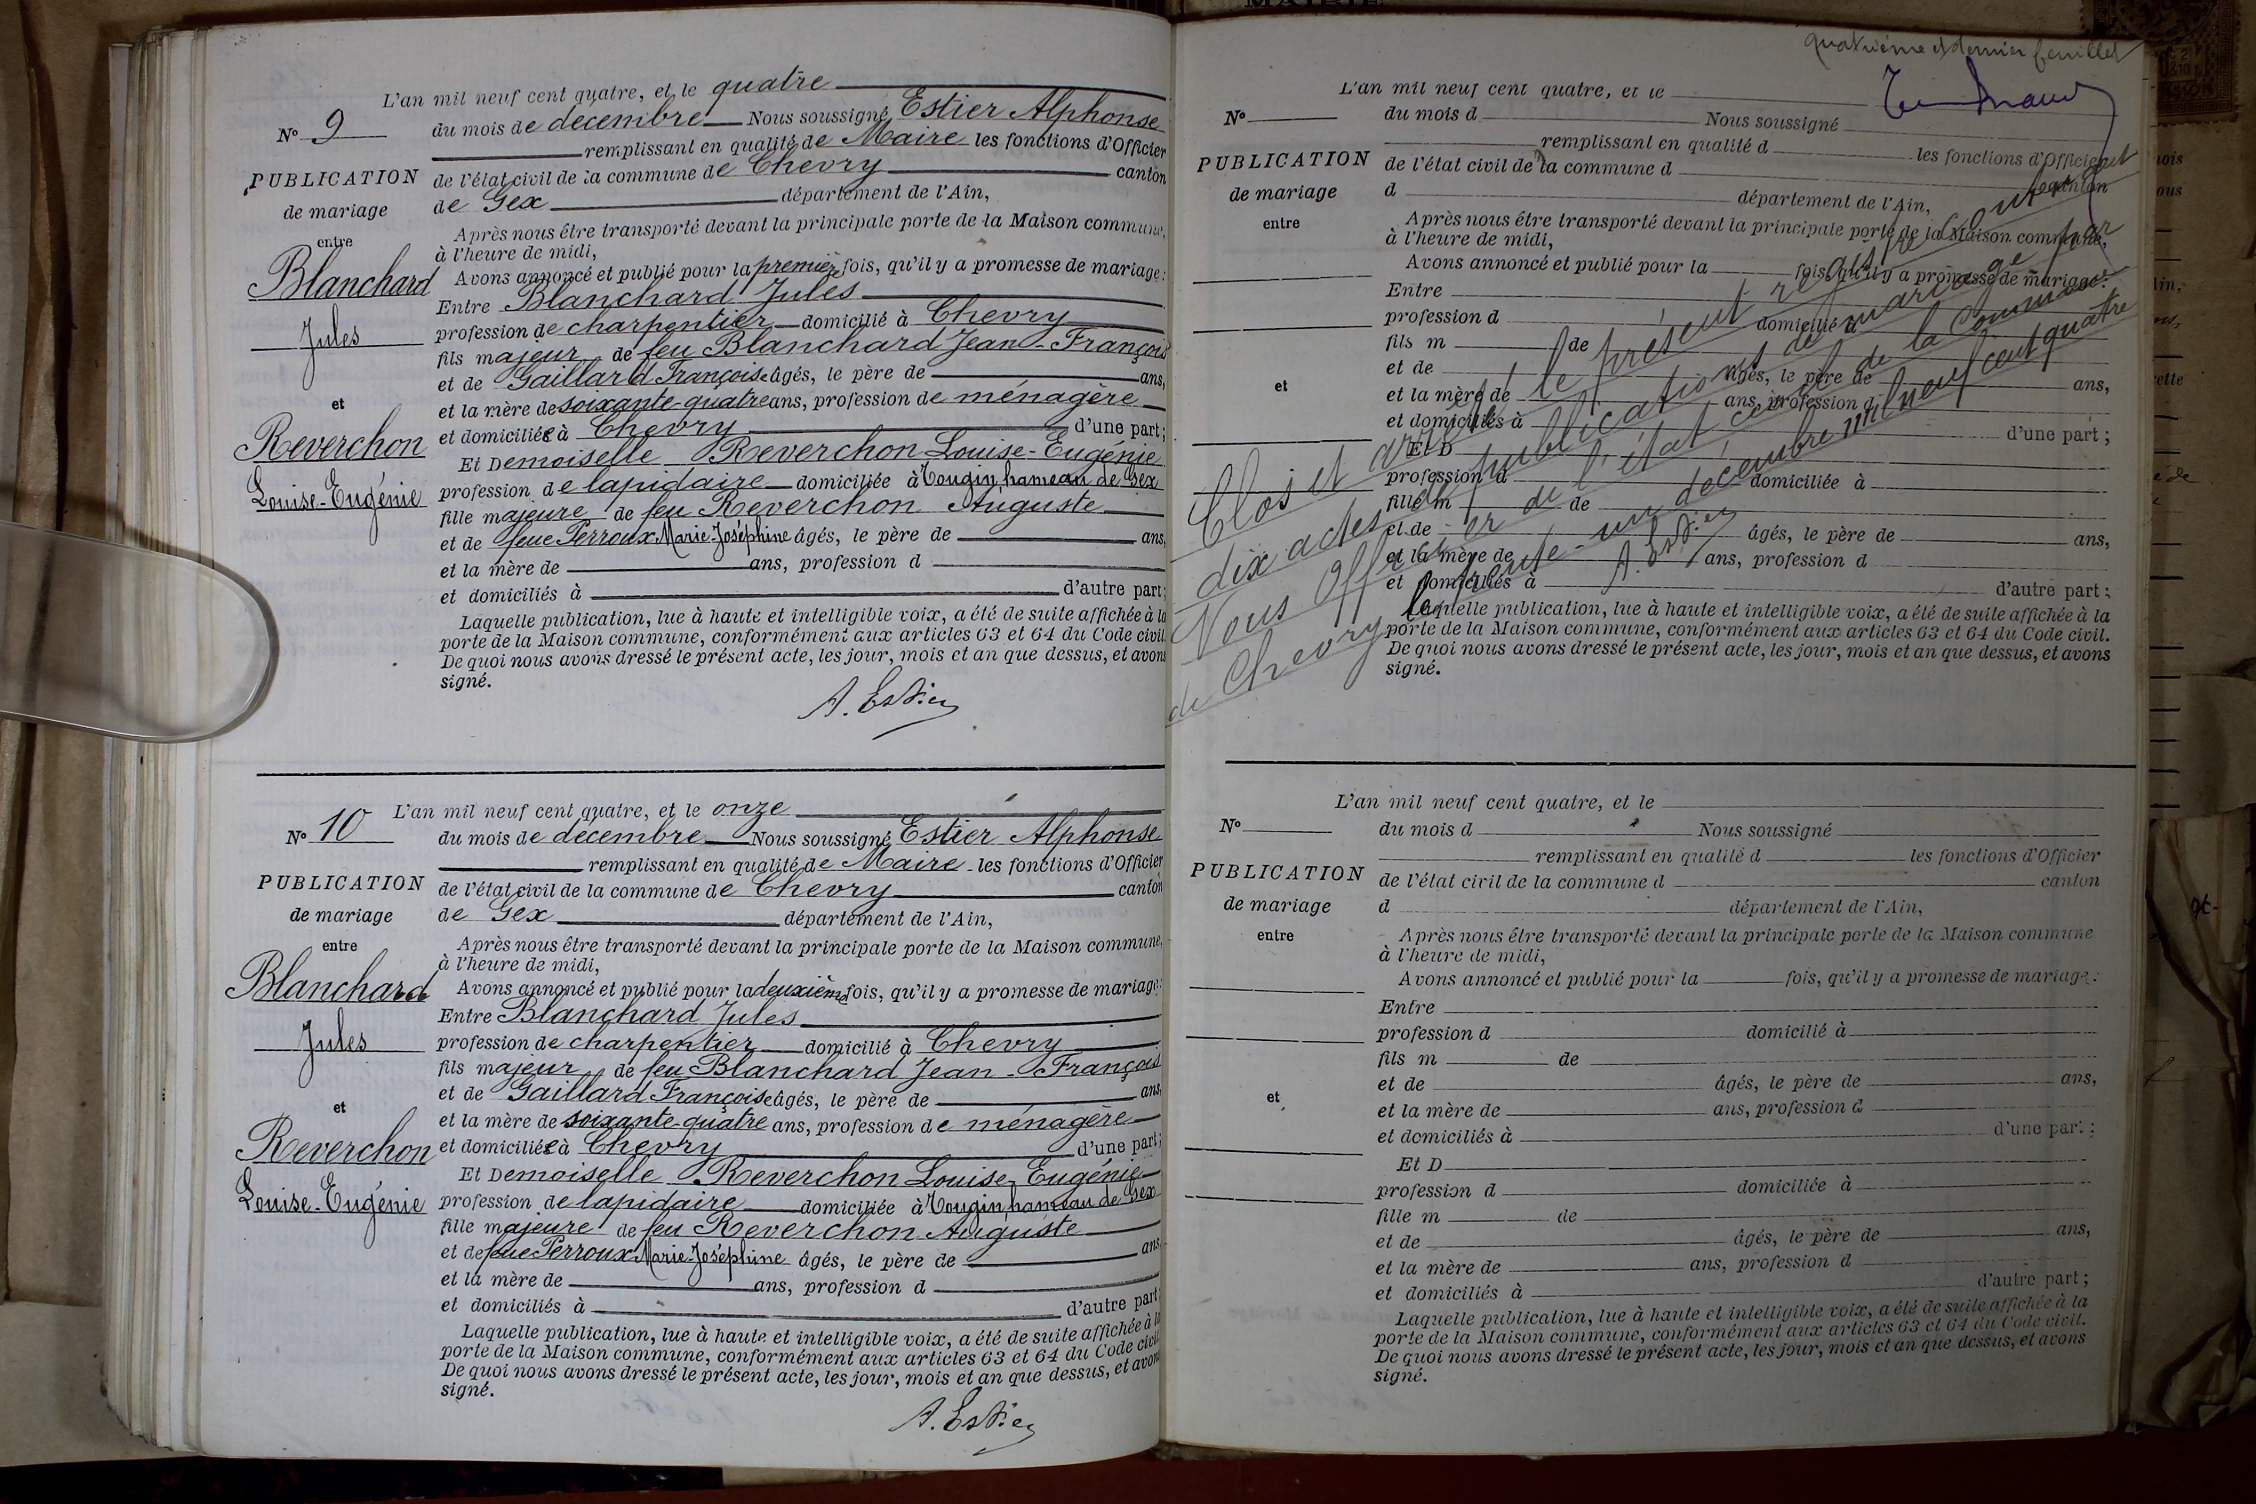 MAIRIE
L'an mil neuf cent quatre, et le quatre
N° 9
du mois de décembre Nous soussigné Estier Alphonse
remplissant en qualité de Maire les fonctions d'Officier
PUBLICATION
de mariage
entre
Blanchard
Jules
et
Reverchon
Louise-Eugénie
de l'état civil de la commune de Chevry canton
de Gex département de l'Ain,
Après nous être transporté devant la principale porte de la Maison commune,
à l'heure de midi,
Avons annoncé et publié pour la première fois, qu'il y a promesse de mariage:
Entre Blanchard Jules
profession de charpentier domicilié à Chevry
fils majeur de feu Blanchard Jean-François
et de Gaillard Françoise âgés, le père de ans,
et la mère de soixante-quatre ans, profession de ménagère
et domiciliée à Chevry d'une part;
Et Demoiselle Reverchon Louise-Eugénie
profession de lapidaire domiciliée à Tougin, hameau de Gex
fille majeure de feu Reverchon Auguste
et de feue Perroux Marie-Joséphine âgés, le père de ans,
et la mère de ans, profession d
et domiciliés à d'autre part;
Laquelle publication, lue à haute et intelligible voix, a été de suite affichée à la
porte de la Maison commune, conformément aux articles 63 et 64 du Code civil
De quoi nous avons dressé le présent acte, les jour, mois et an que dessus, et avons
signé.
A. Estier
L'an mil neuf cent quatre, et le onze
N° 10
du mois de décembre Nous soussigné Estier Alphonse
remplissant en qualité de Maire les fonctions d'Officier
PUBLICATION
de mariage
entre
Blanchard
Jules
et
Reverchon
Louise-Eugénie
de l'état civil de la commune de Chevry canton
de Gex département de l'Ain,
Après nous être transporté devant la principale porte de la Maison commune,
à l'heure de midi,
Avons annoncé et publié pour la deuxième fois, qu'il y a promesse de mariage:
Entre Blanchard Jules
profession de charpentier domicilié à Chevry
fils majeur de feu Blanchard Jean-François
et de Gaillard Françoise âgés, le père de ans,
et la mère de soixante-quatre ans, profession de ménagère
et domiciliée à Chevry d'une part;
Et Demoiselle Reverchon Louise-Eugénie
profession de lapidaire domiciliée à Tougin, hameau de Gex
fille majeure de feu Reverchon Auguste
et de feue Perroux Marie-Joséphine âgés, le père de ans
et la mère de ans, profession d
et domiciliés à d'autre part;
Laquelle publication, lue à haute et intelligible voix, a été de suite affichée à la
porte de la Maison commune, conformément aux articles 63 et 64 du Code civil
De quoi nous avons dressé le présent acte, les jour, mois et an que dessus, et avons
signé.
A. Estier
quatrième et dernier feuillet
L'an mil neuf cent quatre, et le
N°
du mois d Nous soussigné
remplissant en qualité d les fonctions d'Officier
PUBLICATION
de mariage
entre
et
de l'état civil de la commune d canton
d département de l'Ain,
Après nous être transporté devant la principale porte de la Maison commune,
à l'heure de midi,
Avons annoncé et publié pour la fois, qu'il y a promesse de mariage:
Entre
profession d domicilié à
fils m de
et de âgés, le père de ans,
et la mère de ans, profession d
et domiciliés à d'une part;
Et D
profession d domiciliée à
fille m de
et de âgés, le père de ans,
et la mère de ans, profession d
et domiciliés à d'autre part;
Laquelle publication, lue à haute et intelligible voix, a été de suite affichée à la
porte de la Maison commune, conformément aux articles 63 et 64 du Code civil.
De quoi nous avons dressé le présent acte, les jour, mois et an que dessus, et avons
signé.
Clos et arrêté le présent registre contenant
dix actes de publications de mariage par
Nous Officier de l'état civil de la commune
de Chevry le trente-un décembre mil neuf cent quatre
A. Estier
L'an mil neuf cent quatre, et le
N°
du mois d Nous soussigné
remplissant en qualité d les fonctions d'Officier
PUBLICATION
de mariage
entre
et
de l'état civil de la commune d canton
d département de l'Ain,
Après nous être transporté devant la principale porte de la Maison commune
à l'heure de midi,
Avons annoncé et publié pour la fois, qu'il y a promesse de mariage:
Entre
profession d domicilié à
fils m de
et de âgés, le père de ans,
et la mère de ans, profession d
et domiciliés à d'une part;
Et D
profession d domiciliée à
fille m de
et de âgés, le père de ans,
et la mère de ans, profession d
et domiciliés à d'autre part;
Laquelle publication, lue à haute et intelligible voix, a été de suite affichée à la
porte de la Maison commune, conformément aux articles 63 et 64 du Code civil.
De quoi nous avons dressé le présent acte, les jour, mois et an que dessus, et avons
signé.